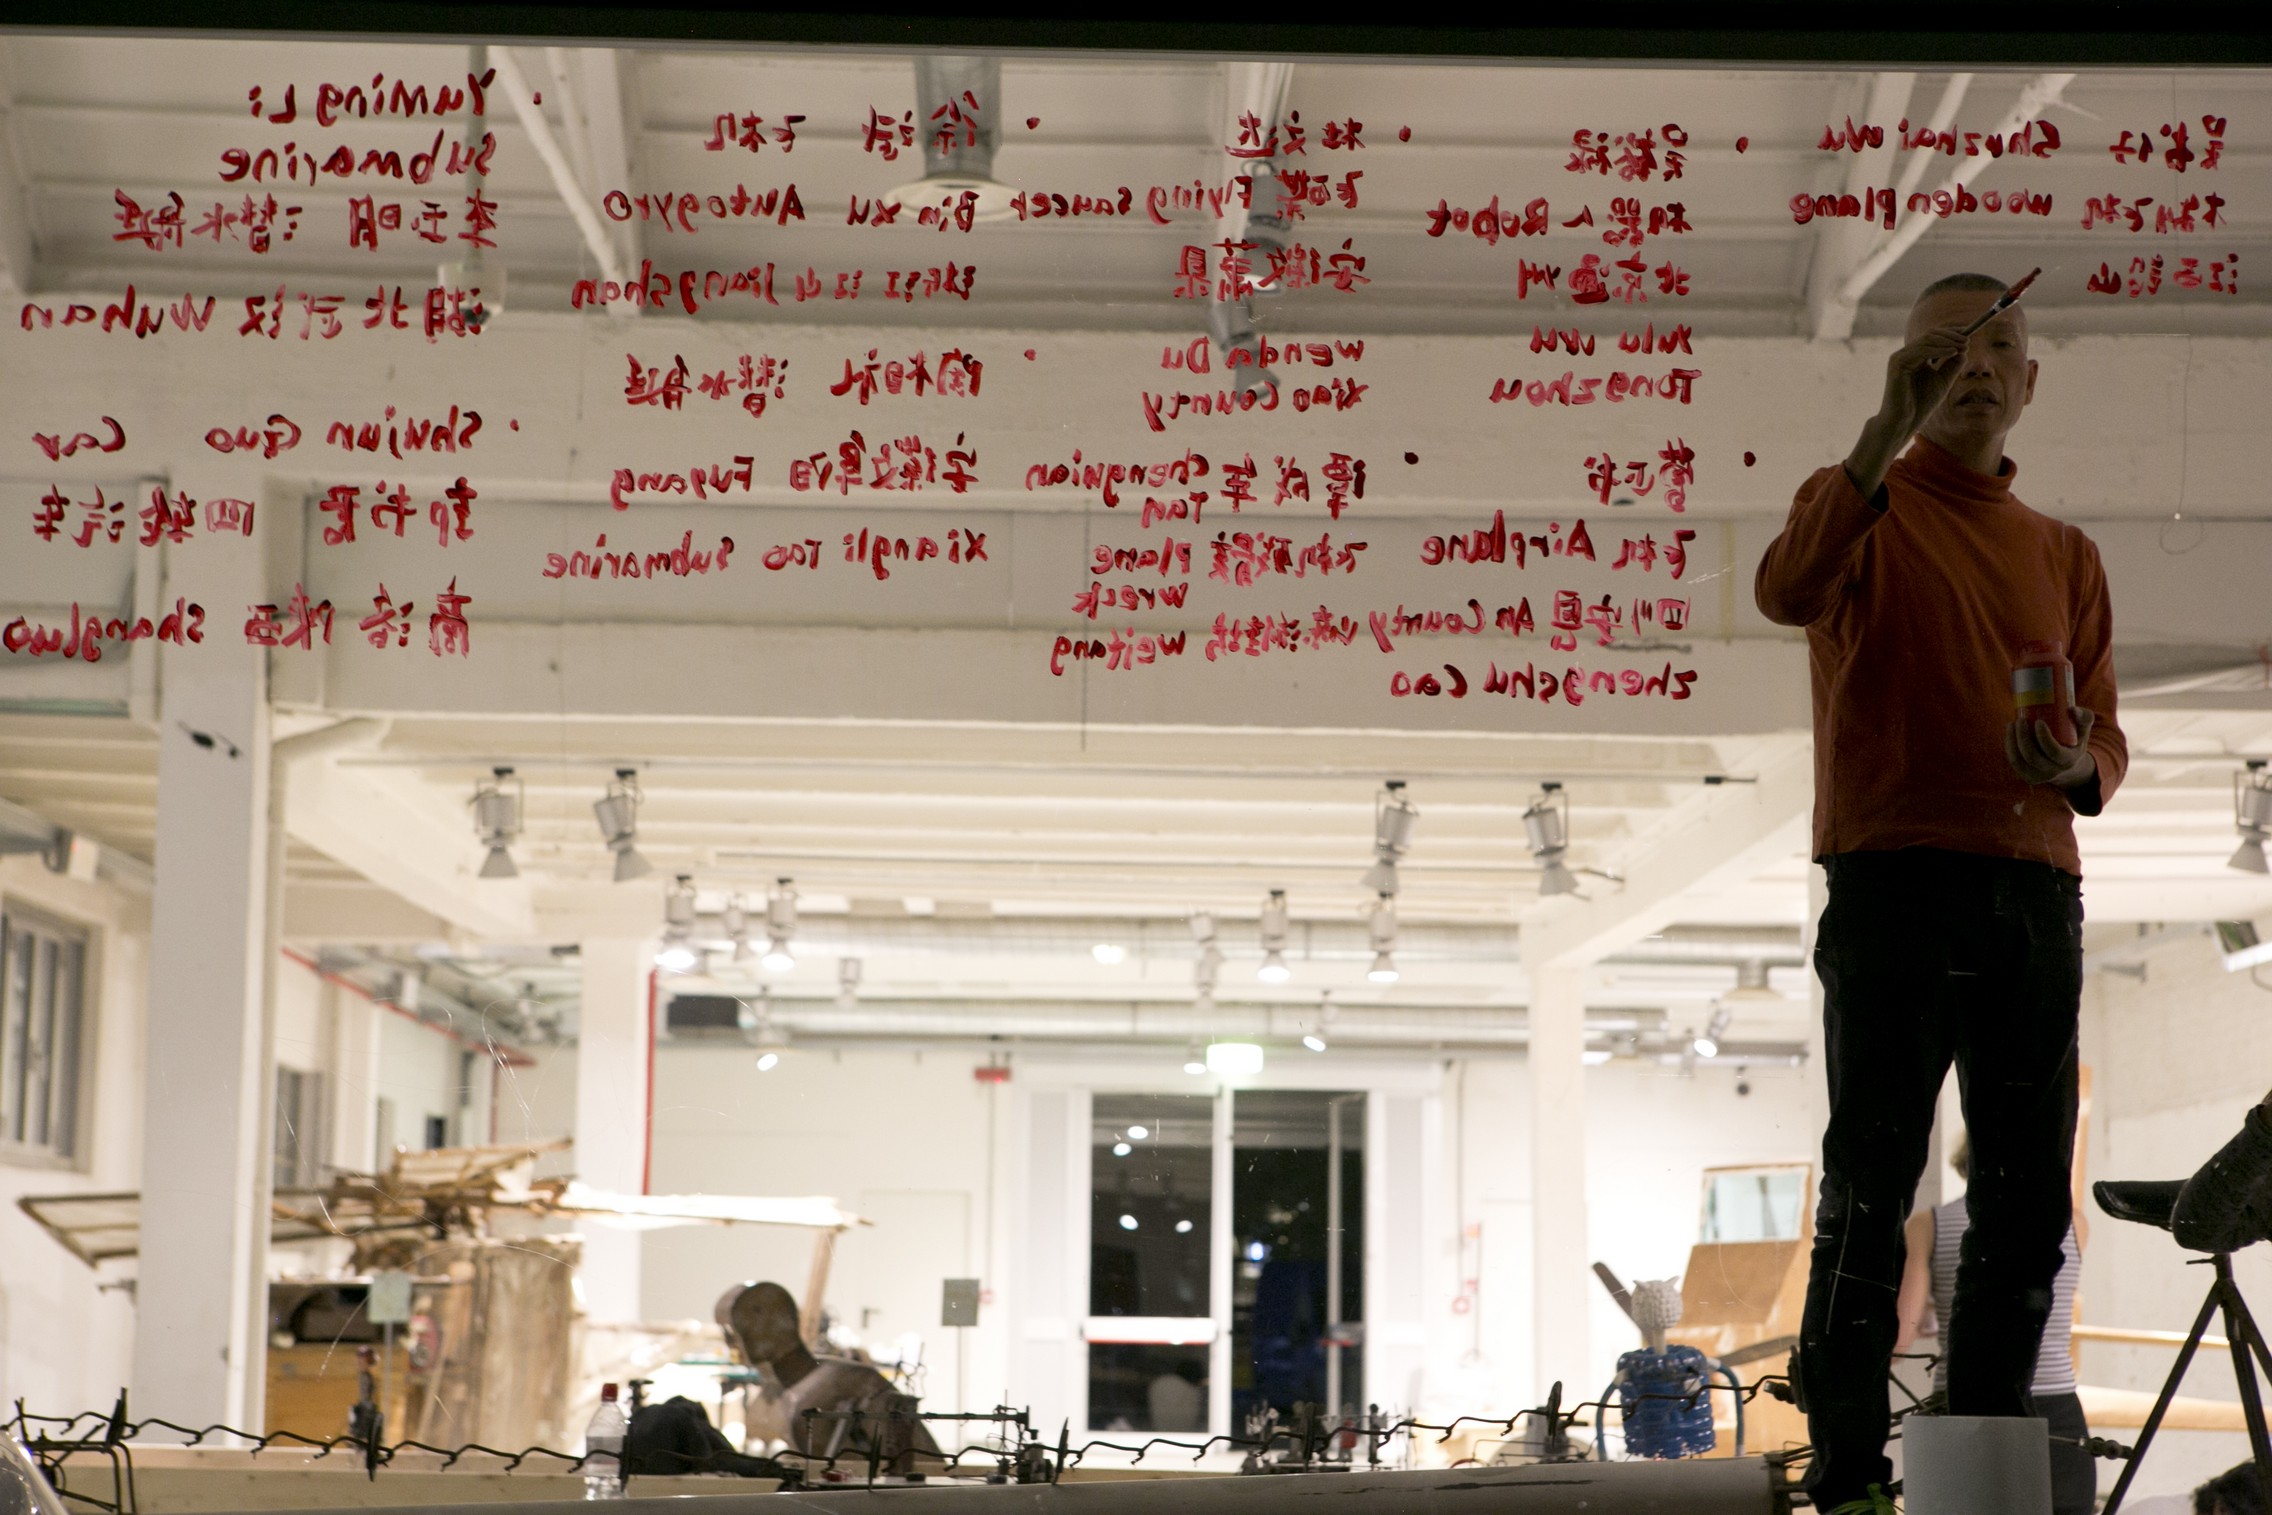 吴书仔 Shuzhai Wu
木制飞机 wooden plane
江西铅山
• 吴
机器人 Robot
北京通州
Yulu Wu
Tongzhou
• 曹正书
飞机 Airplane
四川安县 An County
Zhengchu Cao
• 杜文达
飞碟 Flying Saucer
安徽萧县
Wenda Du
Xiao County
• 谭成年 Chengnian
Tan
飞机残骸 Plane
Wreck
潍坊 Weifang
• 徐斌 飞机
Bin Xu Autogyro
浙江江山 Jiangshan
• 陶相礼 潜水艇
安徽阜阳 Fuyang
Xiangli Tao Submarine
• Yuming Li:
Submarine
李玉明 潜水艇
湖北武汉 Wuhan
• Shujun Guo Car
郭书 四轮汽车
商洛陕西 Shangluo